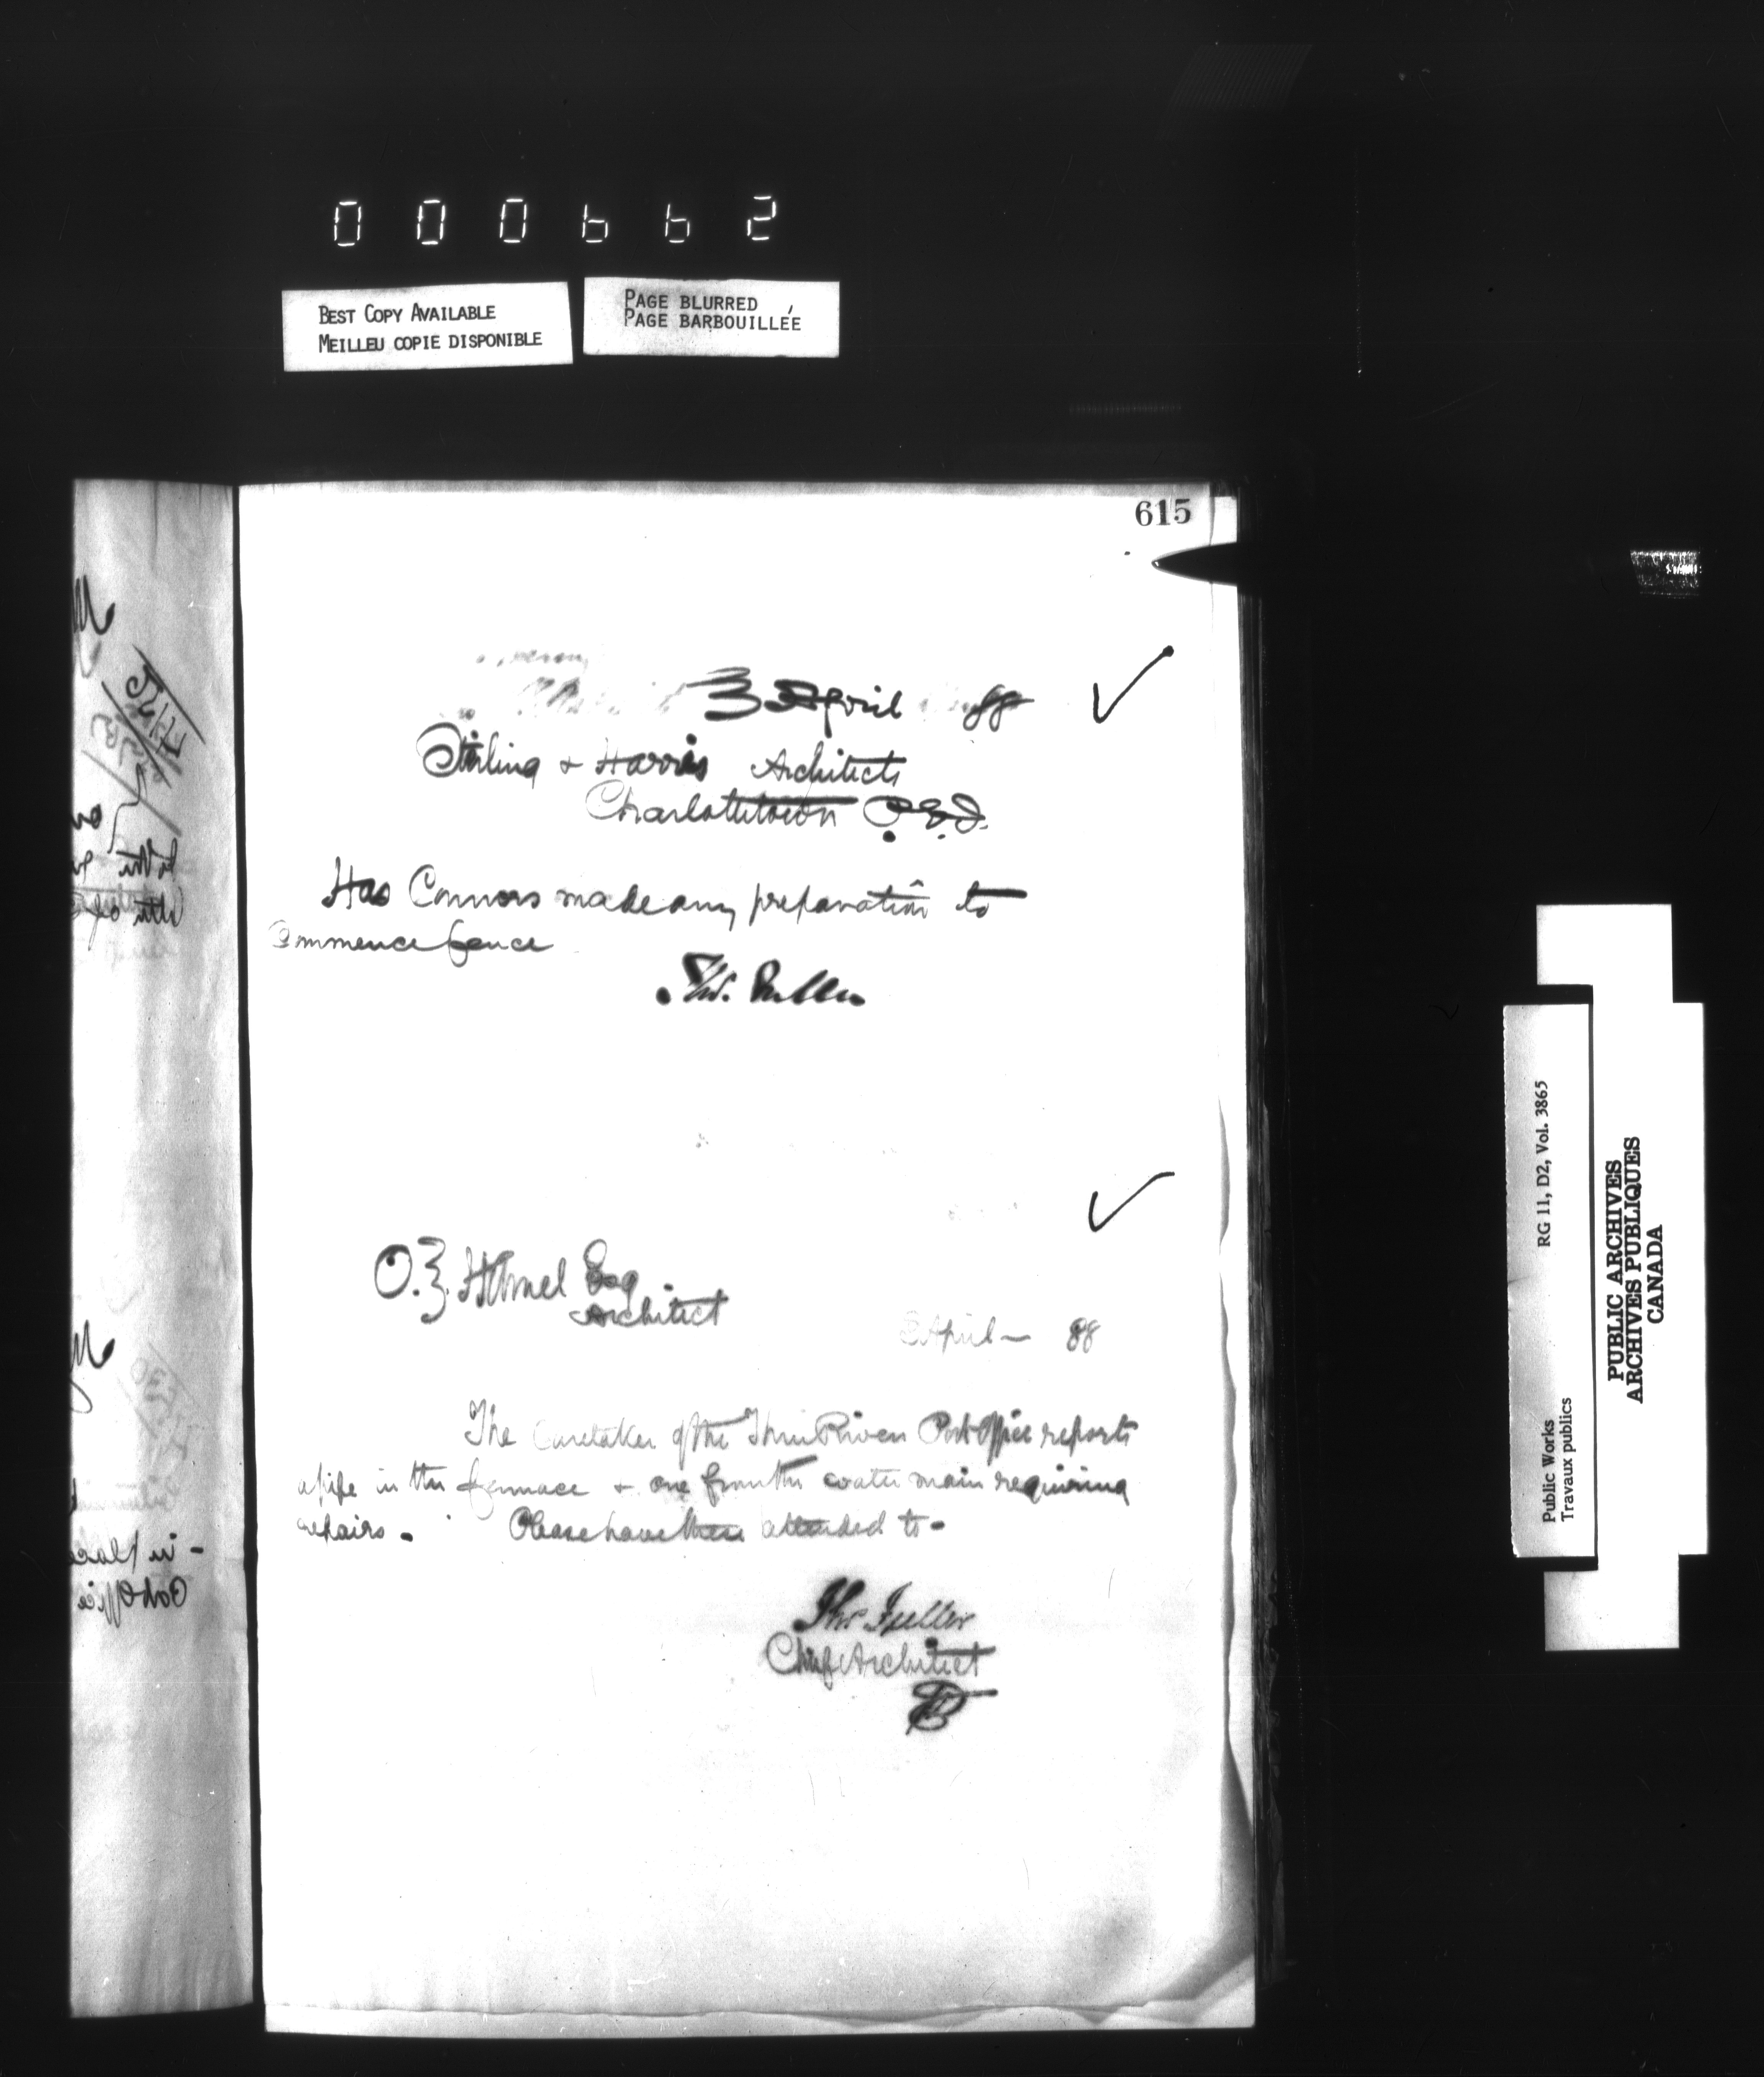 000662
BEST COPY AVAILABLE
MEILLEU COPIE DISPONIBLE
PAGE BLURRED
PAGE BARBOUILLÉE
615
3 April 88
Stirling & Harris Architects
Charlottetown P.E.I.
Has Connors made any preparation to
Commence fence
Thos. Fuller
O.Z. Hamel Esq
Architect
3 April — 88
The Caretaker of the Three Rivers Post Office reports
a pipe in the furnace & one from the water main requiring
repairs - Please have these attended to -
Thos Fuller
Chief Architect
- in place
Post Office
RG 11, D2, Vol. 3865
Public Works
Travaux publics
PUBLIC ARCHIVES
ARCHIVES PUBLIQUES
CANADA